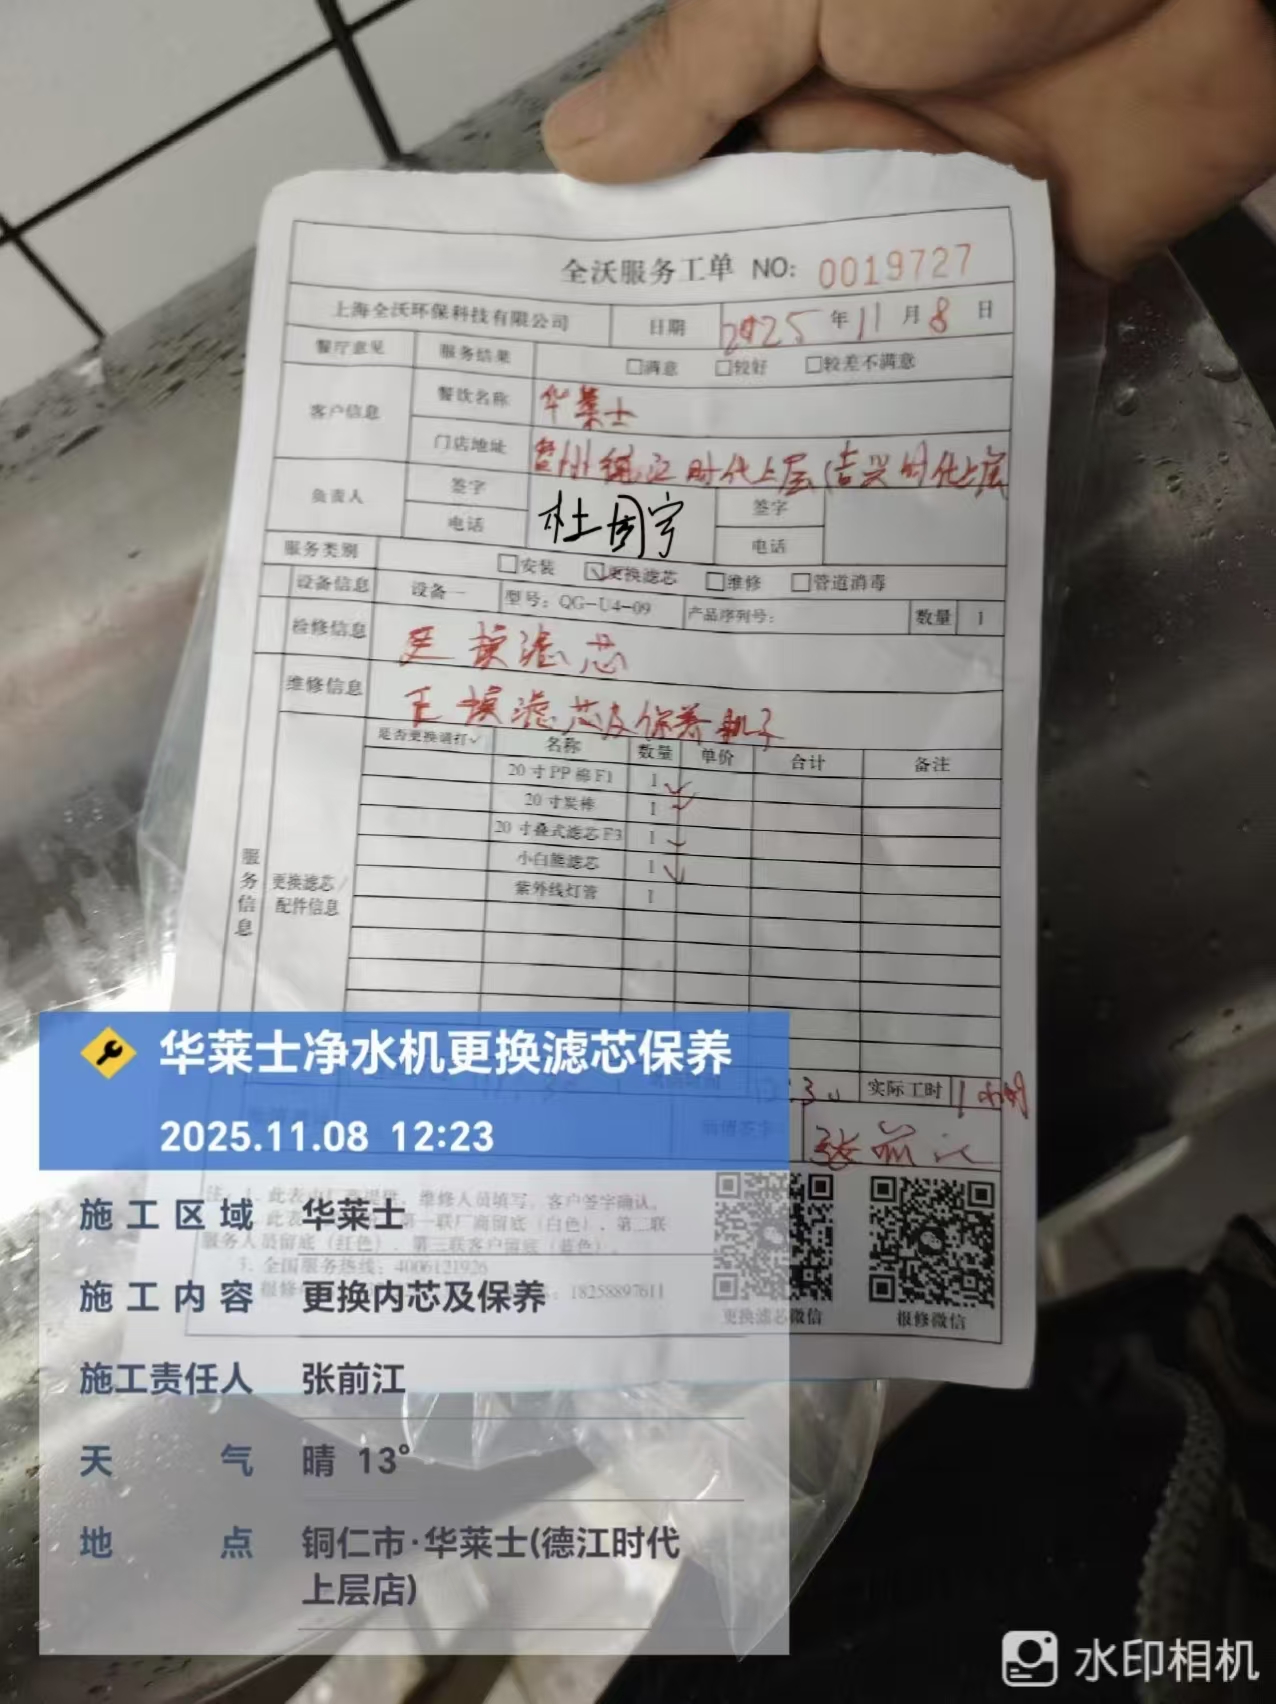 全沃服务工单 NO: 0019727
上海全沃环保科技有限公司 日期 2025年11月8日
餐厅意见 服务结果 □满意 □较好 □较差不满意
客户信息 餐饮名称 华莱士
门店地址 贵州德江时代上层(吉兴时代上层
负责人 签字 杜周宇 签字
电话 电话
服务类别 □安装 ☑更换滤芯 □维修 □管道消毒
设备信息 设备一 型号: QG-U4-09 产品序列号: 数量 1
检修信息 更换滤芯
维修信息 更换滤芯及保养机子
是否更换请打✓ 名称 数量 单价 合计 备注
20寸PP棉F1 1 ✓
20寸炭棒 1 ✓
20寸叠式滤芯F3 1 ✓
小白熊滤芯 1 ✓
紫外线灯管 1
服务信息
更换滤芯/
配件信息
实际工时 1小时
张前江
注: 1. 此表由厂商提供, 维修人员填写, 客户签字确认。
此表 第一联厂商留底(白色), 第二联
服务人员留底(红色), 第三联客户留底(蓝色)。
3. 全国服务热线: 4006121926
报修 18258897611
更换滤芯微信 报修微信
华莱士净水机更换滤芯保养
2025.11.08 12:23
施工区域 华莱士
施工内容 更换内芯及保养
施工责任人 张前江
天气 晴 13°
地点 铜仁市·华莱士(德江时代
上层店)
水印相机